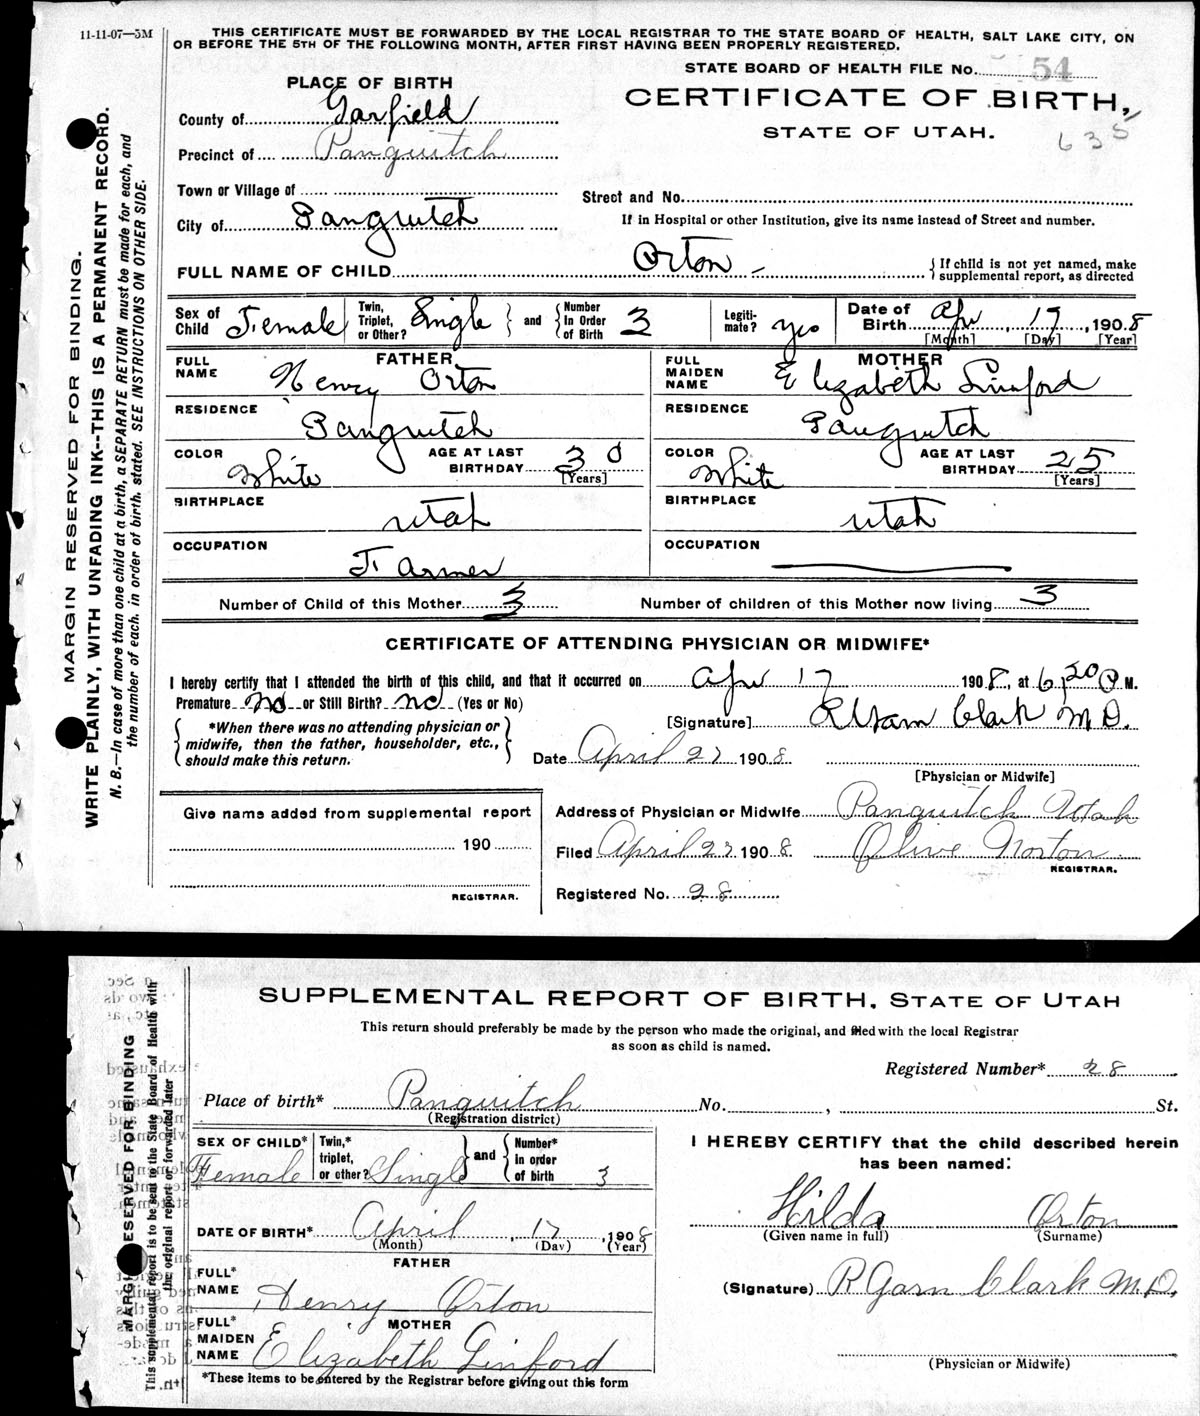 11-11-07—5M
THIS CERTIFICATE MUST BE FORWARDED BY THE LOCAL REGISTRAR TO THE STATE BOARD OF HEALTH, SALT LAKE CITY, ON
OR BEFORE THE 5TH OF THE FOLLOWING MONTH, AFTER FIRST HAVING BEEN PROPERLY REGISTERED.
STATE BOARD OF HEALTH FILE No. 54
PLACE OF BIRTH
CERTIFICATE OF BIRTH,
STATE OF UTAH.
635
County of Garfield
Precinct of Panguitch
Town or Village of
Street and No.
City of Panguitch
If in Hospital or other Institution, give its name instead of Street and number.
FULL NAME OF CHILD Orton - { If child is not yet named, make
supplemental report, as directed
Sex of Child Female Twin, Triplet, or Other? Single } and { Number In Order of Birth 3 Legiti-mate? yes Date of Birth Apr 17, 1908
[Month] [Day] [Year]
FATHER MOTHER
FULL NAME Henry Orton FULL MAIDEN NAME Elizabeth Linford
RESIDENCE Panguitch RESIDENCE Panguitch
COLOR White AGE AT LAST BIRTHDAY 30 [Years] COLOR White AGE AT LAST BIRTHDAY 25 [Years]
BIRTHPLACE Utah BIRTHPLACE Utah
OCCUPATION Farmer OCCUPATION
Number of Child of this Mother 3 Number of children of this Mother now living 3
CERTIFICATE OF ATTENDING PHYSICIAN OR MIDWIFE*
I hereby certify that I attended the birth of this child, and that it occurred on Apr 17 1908, at 6,20 P M.
Premature No or Still Birth? no (Yes or No)
{ *When there was no attending physician or
midwife, then the father, householder, etc.,
should make this return. }
[Signature] Clark M.D.
Date April 27 1908
[Physician or Midwife]
Give name added from supplemental report
190
REGISTRAR.
Address of Physician or Midwife Panguitch Utah
Filed April 27 1908 Olive Norton
REGISTRAR.
Registered No. 28
MARGIN RESERVED FOR BINDING.
WRITE PLAINLY, WITH UNFADING INK--THIS IS A PERMANENT RECORD.
N. B.—In case of more than one child at a birth, a SEPARATE RETURN must be made for each, and
the number of each, in order of birth, stated. SEE INSTRUCTIONS ON OTHER SIDE.
SUPPLEMENTAL REPORT OF BIRTH, STATE OF UTAH
This return should preferably be made by the person who made the original, and filed with the local Registrar
as soon as child is named.
Registered Number* 28
Place of birth* Panguitch No. , St.
(Registration district)
SEX OF CHILD* Female Twin,* triplet, or other? Single } and { Number* In order of birth 3
I HEREBY CERTIFY that the child described herein
has been named:
Hilda Orton
(Given name in full) (Surname)
DATE OF BIRTH* April, 17, 1908
(Month) (Day) (Year)
FATHER
FULL* NAME Henry Orton
(Signature) R Garn Clark M.D.
MOTHER
FULL* MAIDEN NAME Elizabeth Linford
(Physician or Midwife)
*These items to be entered by the Registrar before giving out this form
MARGIN RESERVED FOR BINDING
This supplemental report is to be sent to the State Board of Health with
the original report or forwarded later